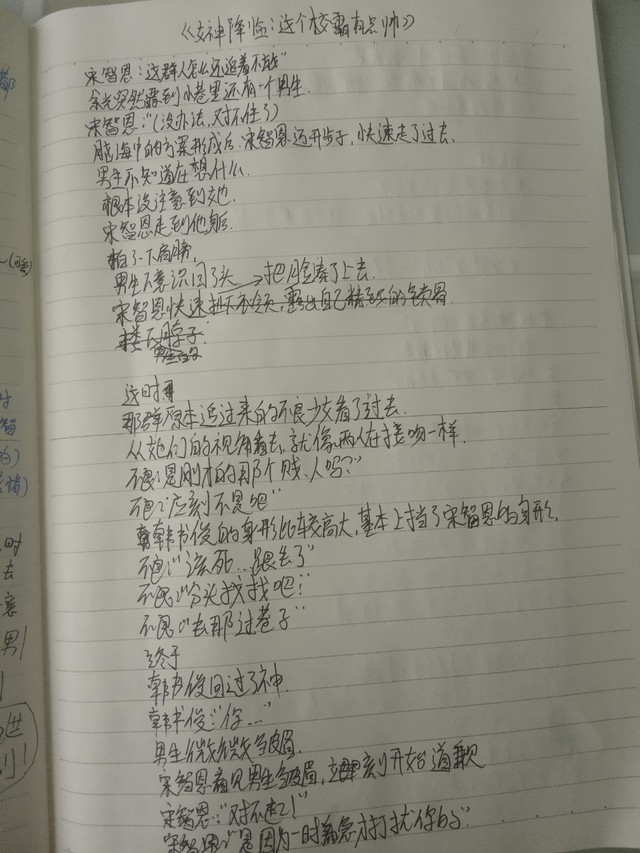 《女神降临:这个校霸有点帅》
宋智恩:"这群人怎么还追着不放"
余光突然瞟到小巷里还有一个男生.
宋智恩:"(没办法,对不住了)
脑海中的方案形成后.宋智恩迈开步子,快速走了过去.
男生不知道在想什么.
根本没注意到她.
宋智恩走到他身后.
拍了一下肩膀,
男生下意识回了头 把脸凑了上去.
宋智恩快速扯下外套,露出自己精致的锁骨.
搂 脖子.
男生的
这时
那群原本追过来的不良少女看了过去.
从她们的视角看去,就像两人在接吻一样.
不良:"是刚才的那个贱.人吗?"
不良:"应刻不是吧"
韩书俊的身形比较高大,基本上挡了宋智恩的身形.
不良:"该死...跟丢了"
不良:"分头找找吧!"
不良:"去那边巷子"
终于
韩书俊回过了神.
韩书俊:"你..."
男生微微皱眉.
宋智恩看见男生皱眉,立刻开始道歉
宋智恩:"对不起!"
宋智恩:"是因为一时着急才打扰你的"
对
智
的)
时
去
意
男